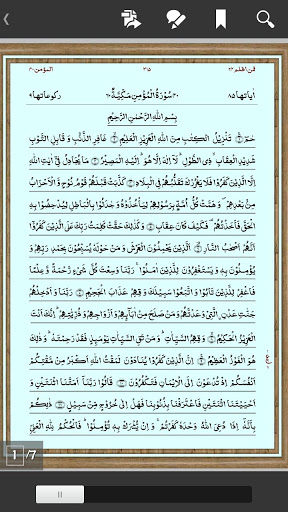 فمن اظلم ۲۴
المؤمن ۴۰
اٰیاتها ۸۵
سُوْرَةُ الْمُؤْمِنِ مَكِّيَّةٌ
رکوعاتها ۹
بِسْمِ اللّٰهِ الرَّحْمٰنِ الرَّحِيْمِ
حٰمٓ ۝۱ تَنْزِيْلُ الْكِتٰبِ مِنَ اللّٰهِ الْعَزِيْزِ الْعَلِيْمِ ۝۲ غَافِرِ الذَّنْۢبِ وَ قَابِلِ التَّوْبِ
شَدِيْدِ الْعِقَابِ ۙ ذِی الطَّوْلِ ؕ لَاۤ اِلٰهَ اِلَّا هُوَ ؕ اِلَيْهِ الْمَصِيْرُ ۝۳ مَا يُجَادِلُ فِیْۤ اٰيٰتِ اللّٰهِ
اِلَّا الَّذِيْنَ كَفَرُوْا فَلَا يَغْرُرْكَ تَقَلُّبُهُمْ فِی الْبِلَادِ ۝۴ كَذَّبَتْ قَبْلَهُمْ قَوْمُ نُوْحٍ وَّ الْاَحْزَابُ
مِنْۢ بَعْدِهِمْ ۪ وَ هَمَّتْ كُلُّ اُمَّةٍۭ بِرَسُوْلِهِمْ لِيَاْخُذُوْهُ وَ جٰدَلُوْا بِالْبَاطِلِ لِيُدْحِضُوْا بِهِ
الْحَقَّ فَاَخَذْتُهُمْ ۫ فَكَيْفَ كَانَ عِقَابِ ۝۵ وَ كَذٰلِكَ حَقَّتْ كَلِمَتُ رَبِّكَ عَلَی الَّذِيْنَ كَفَرُوْۤا
اَنَّهُمْ اَصْحٰبُ النَّارِ ۝۶ اَلَّذِيْنَ يَحْمِلُوْنَ الْعَرْشَ وَ مَنْ حَوْلَهٗ يُسَبِّحُوْنَ بِحَمْدِ رَبِّهِمْ وَ
يُؤْمِنُوْنَ بِهٖ وَ يَسْتَغْفِرُوْنَ لِلَّذِيْنَ اٰمَنُوْا ۚ رَبَّنَا وَسِعْتَ كُلَّ شَیْءٍ رَّحْمَةً وَّ عِلْمًا
فَاغْفِرْ لِلَّذِيْنَ تَابُوْا وَ اتَّبَعُوْا سَبِيْلَكَ وَ قِهِمْ عَذَابَ الْجَحِيْمِ ۝۷ رَبَّنَا وَ اَدْخِلْهُمْ
جَنّٰتِ عَدْنِ ِۨالَّتِیْ وَعَدْتَّهُمْ وَ مَنْ صَلَحَ مِنْ اٰبَآئِهِمْ وَ اَزْوَاجِهِمْ وَ ذُرِّيّٰتِهِمْ ؕ اِنَّكَ اَنْتَ
الْعَزِيْزُ الْحَكِيْمُ ۝۸ وَ قِهِمُ السَّيِّاٰتِ ؕ وَ مَنْ تَقِ السَّيِّاٰتِ يَوْمَئِذٍ فَقَدْ رَحِمْتَهٗ ؕ وَ ذٰلِكَ
هُوَ الْفَوْزُ الْعَظِيْمُ ۝۹ اِنَّ الَّذِيْنَ كَفَرُوْا يُنَادَوْنَ لَمَقْتُ اللّٰهِ اَكْبَرُ مِنْ مَّقْتِكُمْ
اَنْفُسَكُمْ اِذْ تُدْعَوْنَ اِلَی الْاِيْمَانِ فَتَكْفُرُوْنَ ۝۱۰ قَالُوْا رَبَّنَاۤ اَمَتَّنَا اثْنَتَيْنِ وَ
اَحْيَيْتَنَا اثْنَتَيْنِ فَاعْتَرَفْنَا بِذُنُوْبِنَا فَهَلْ اِلٰی خُرُوْجٍ مِّنْ سَبِيْلٍ ۝۱۱ ذٰلِكُمْ
بِاَنَّهٗۤ اِذَا دُعِیَ اللّٰهُ وَحْدَهٗ كَفَرْتُمْ ۚ وَ اِنْ يُّشْرَكْ بِهٖ تُؤْمِنُوْا ؕ فَالْحُكْمُ لِلّٰهِ الْعَلِیِّ
1/7